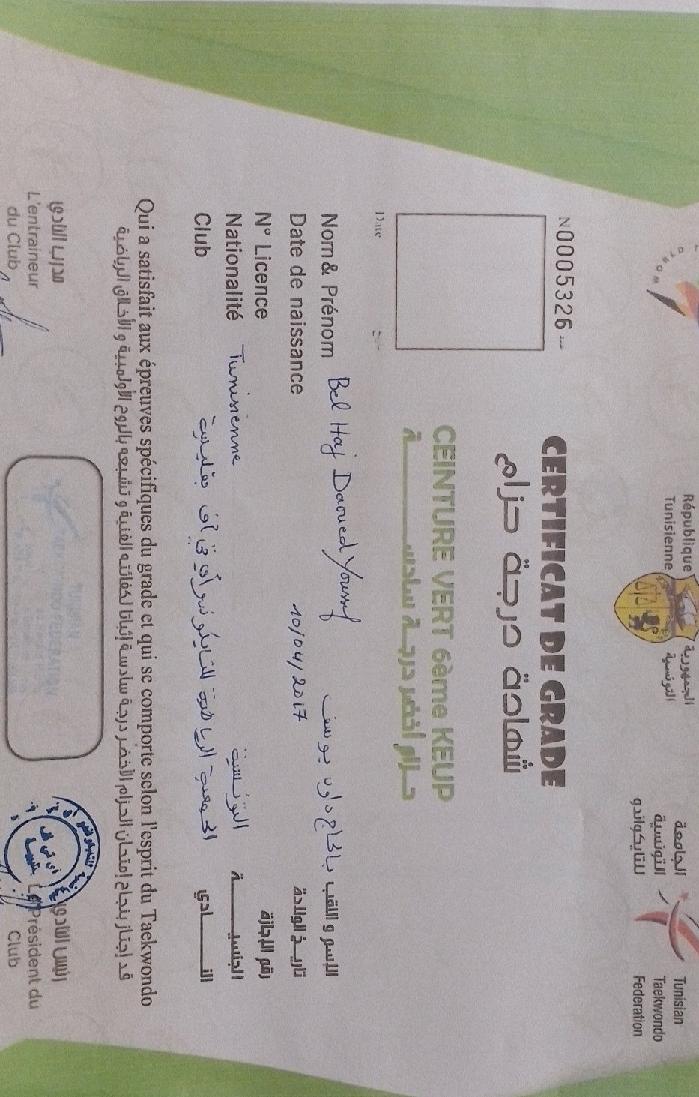 République
Tunisienne
الجمهورية
التونسية
الجامعة
التونسية
للتايكواندو
Tunisian
Taekwondo
Federation
N 0005326
CERTIFICAT DE GRADE
شهادة درجة حزام
CEINTURE VERT 6ème KEUP
حزام أخضر درجة سادسة
Date
Nom & Prénom Bel Haj Daoued Youssef بالحاج داود يوسف الإسم و اللقب
Date de naissance 10/04/2017 تاريخ الولادة
N° Licence رقم الإجازة
Nationalité Tunisienne التونسية الجنسية
Club الجمعية الرياضية للتايكوندو النادي
Qui a satisfait aux épreuves spécifiques du grade et qui se comporte selon l'esprit du Taekwondo
قد إجتاز بنجاح إمتحان الحزام الأخضر درجة سادسة إثباتا لكفائته الفنية و تشبعه بالروح الأولمبية و الأخلاق الرياضية
مدرب النادي
L'entraineur
du Club
رئيس النادي
Le Président du
Club